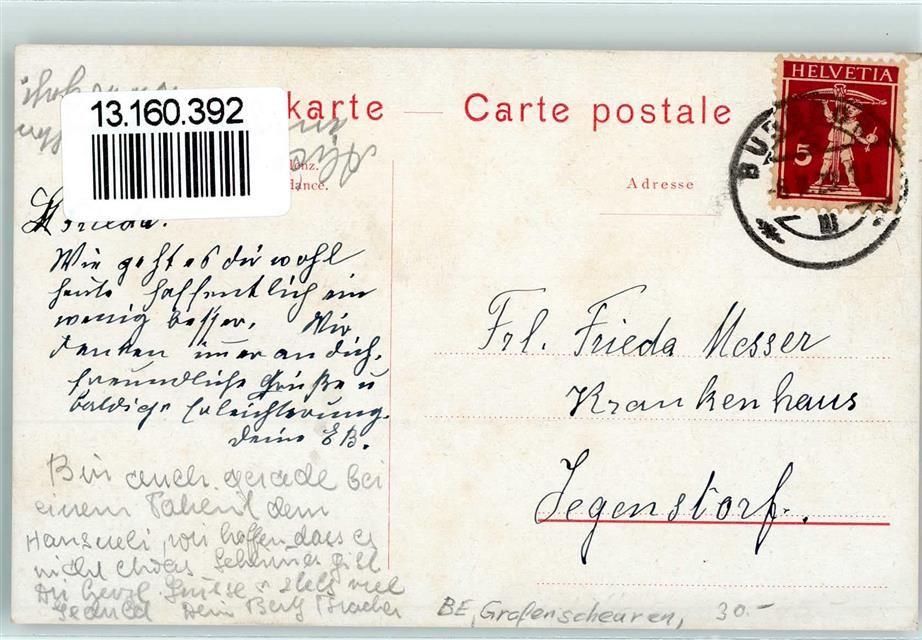 13.160.392
karte — Carte postale
HELVETIA
5
Adresse
dance.
Frieda.
Wie geht es dir wohl
heute hoffentlich ein
wenig besser. Wir
denken imer an dich.
freundliche Grüße u
baldige Erleichterung.
deine EB.
Bin auch gerade bei
einem dem
Hansueli, wir hoffen dass es
nicht gibt
Dir herzl. Grüsse viel
Geduld Dein
Frl. Frieda Messer
Krankenhaus
Jegenstorf.
BE, Grafenscheuren, 30.-